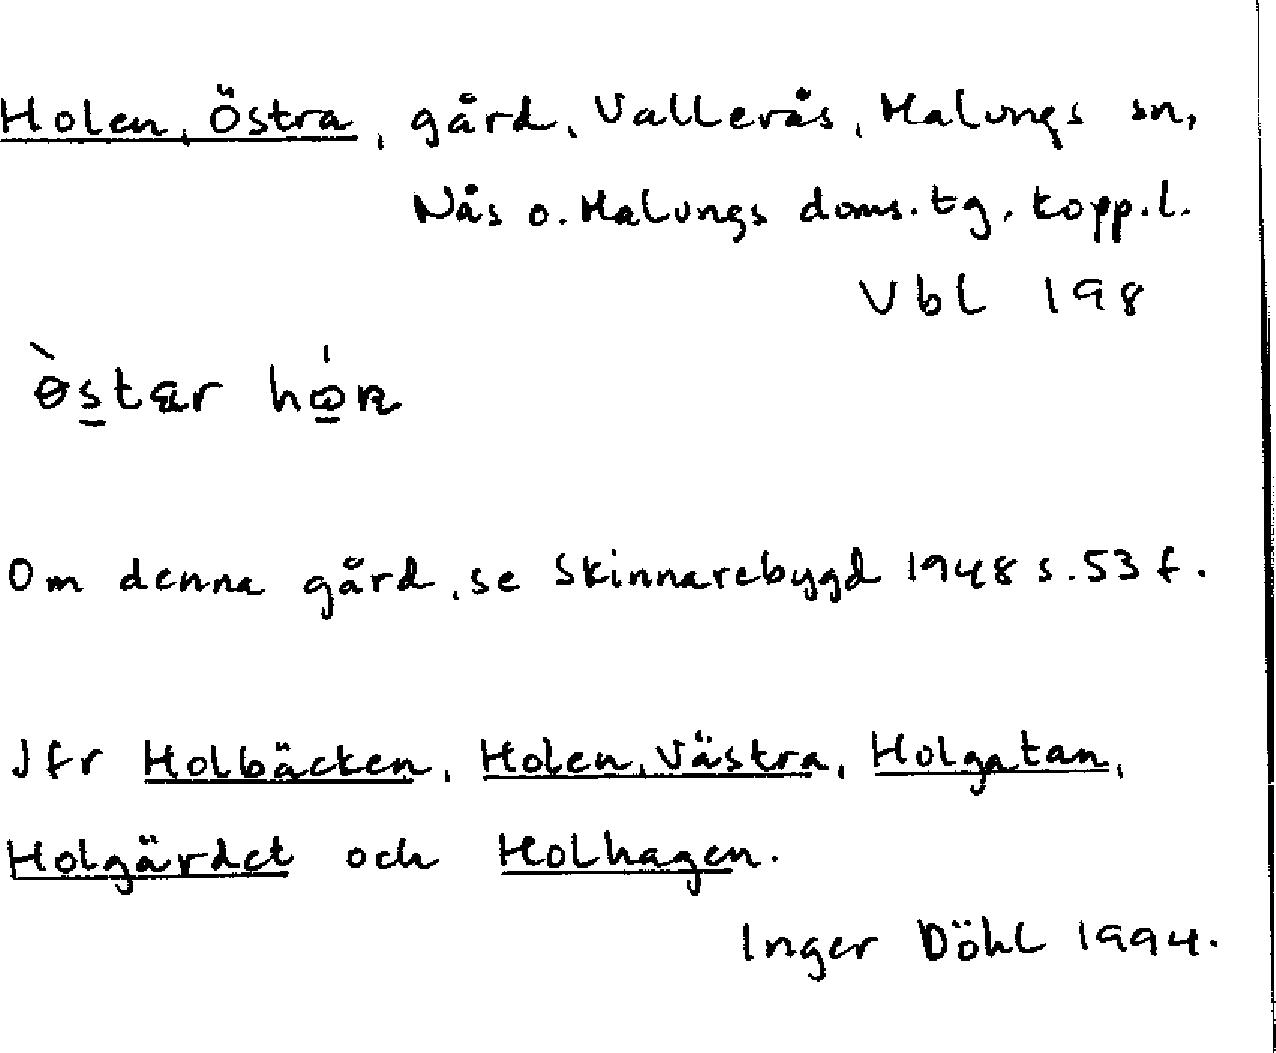 Holen, Östra, gård, Vallerås, Malungs sn,
Nås o. Malungs doms.tg, Kopp.l.
Vbl 198
Om denna gård, se Skinnarebygd 1948 s.53 f.
Jfr Holbäcken, Holen, Västra, Holgatan,
Holgärdet och Holhagen.
Inger Döhl 1994.